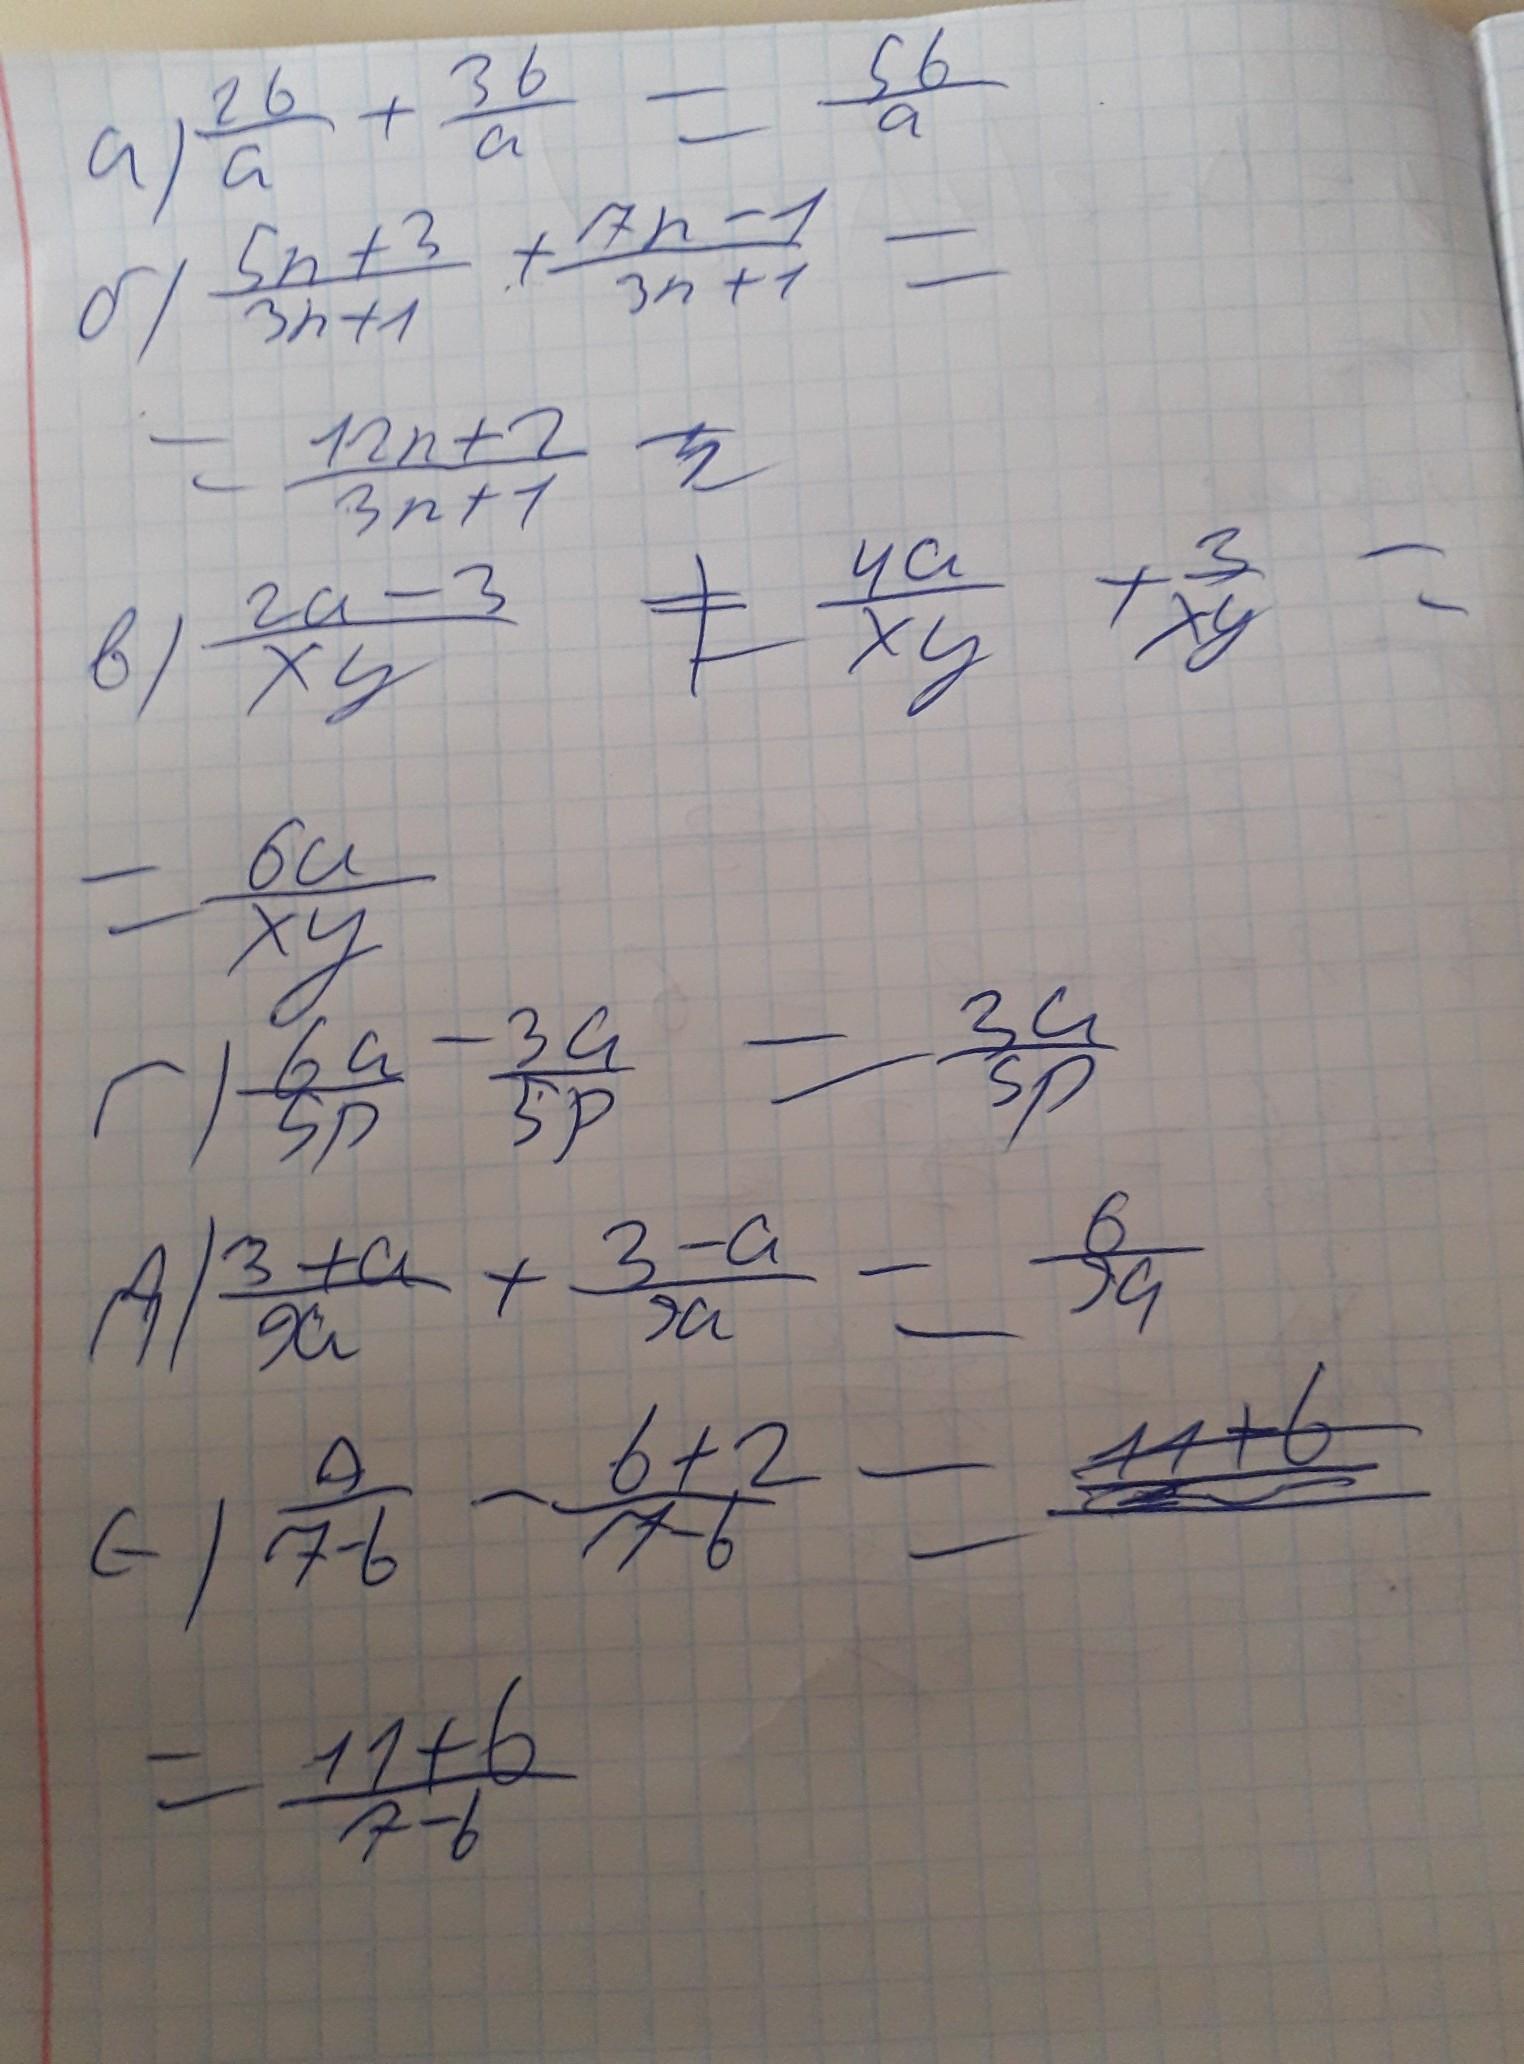 а) 2b/a + 3b/a = 5b/a
б) (5n+3)/(3n+1) + (7n-1)/(3n+1) =
= (12n+2)/(3n+1)
в) (2a-3)/(xy) + 4a/(xy) + 3/(xy) =
= 6a/(xy)
г) 6a/(5p) - 3a/(5p) = 3a/(5p)
д) (3+a)/(9a) + (3-a)/(9a) = 6/(9a)
е) /(7-b) - (b+2)/(7-b) =
= (11+b)/(7-b)